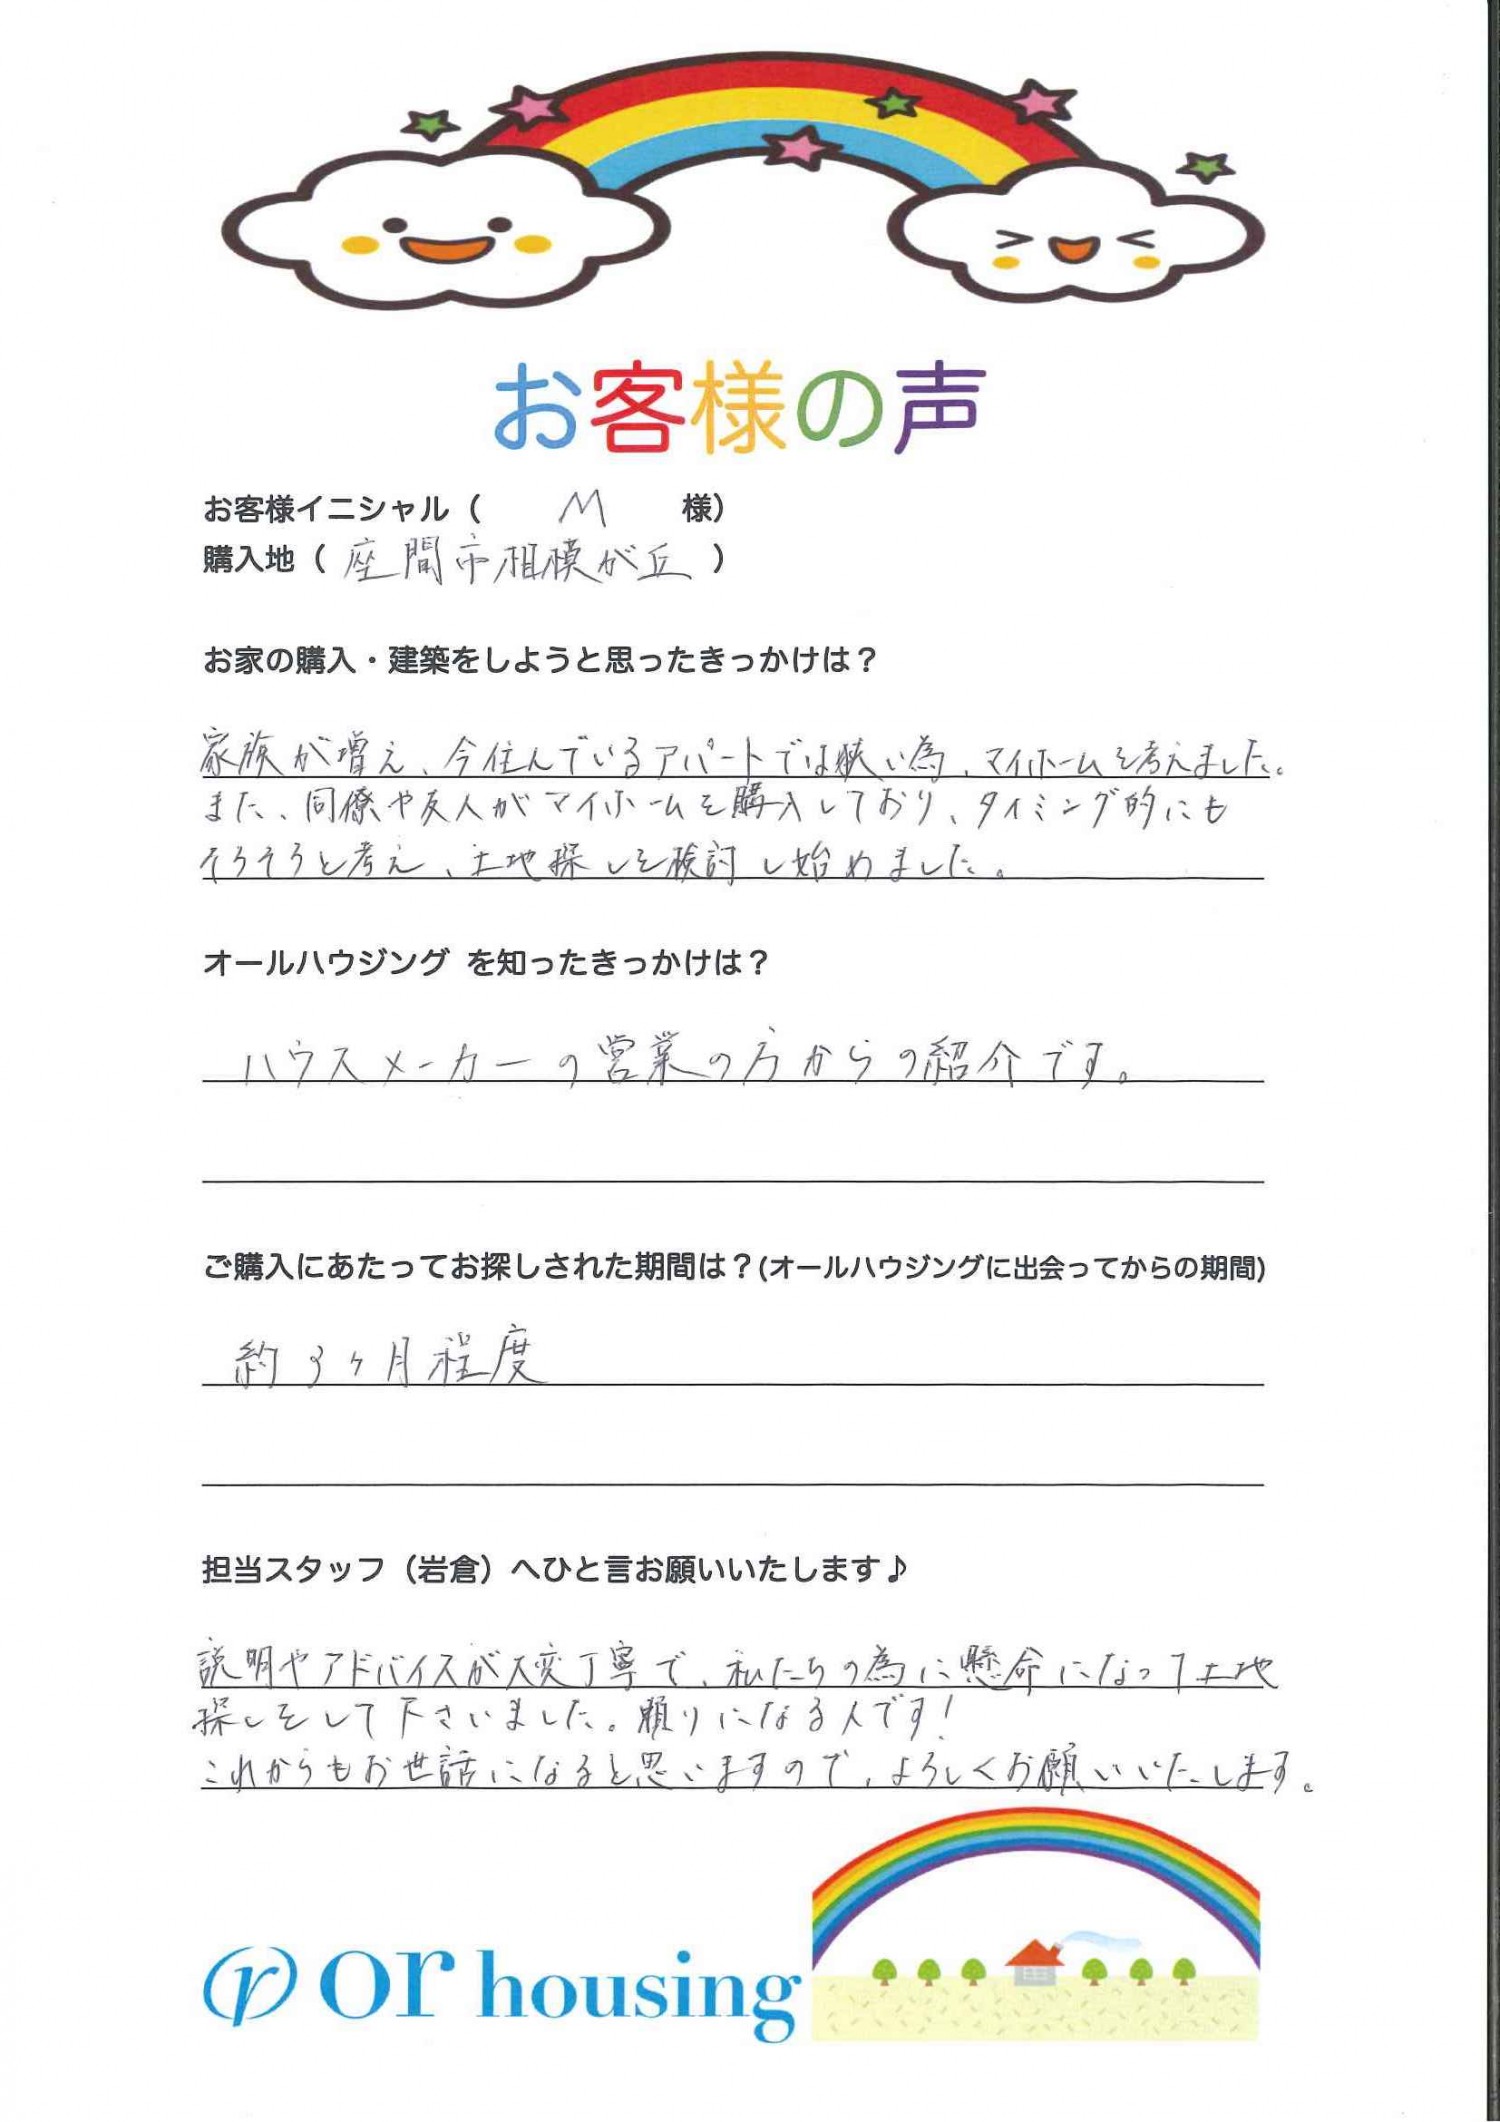 お客様の声
お客様イニシャル（ M 様）
購入地（ 座間市相模が丘 ）
お家の購入・建築をしようと思ったきっかけは？
家族が増え、今住んでいるアパートでは狭い為、マイホームを考えました。
また、同僚や友人がマイホームを購入しており、タイミング的にも
そろそろと考え、土地探しを検討し始めました。
オールハウジング を知ったきっかけは？
ハウスメーカーの営業の方からの紹介です。
ご購入にあたってお探しされた期間は？(オールハウジングに出会ってからの期間)
約3ヶ月程度
担当スタッフ（岩倉）へひと言お願いいたします♪
説明やアドバイスが大変丁寧で、私たちの為に懸命になって土地
探しをして下さいました。頼りになる人です！
これからもお世話になると思いますので、よろしくお願いいたします。
r or housing